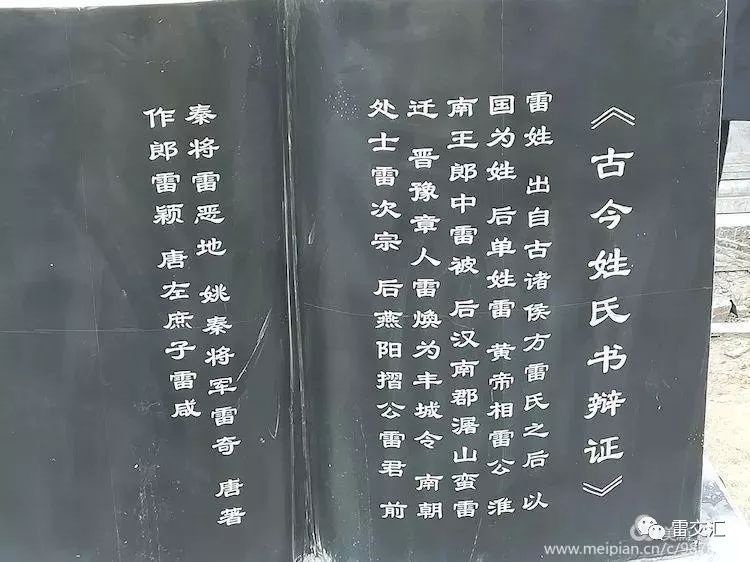 《古今姓氏书辩证》
雷姓 出自古诸侯方雷氏之后 以
国为姓 后单姓雷 黄帝相雷公 淮
南王郎中雷被 后汉南郡潺山蛮雷
迁 晋豫章人雷焕为丰城令 南朝
处士雷次宗 后燕阳摺公雷君 前
秦将雷恶地 姚秦将军雷奇 唐著
作郎雷颖 唐左庶子雷咸
雷交汇
www.meipian.cn/c/98